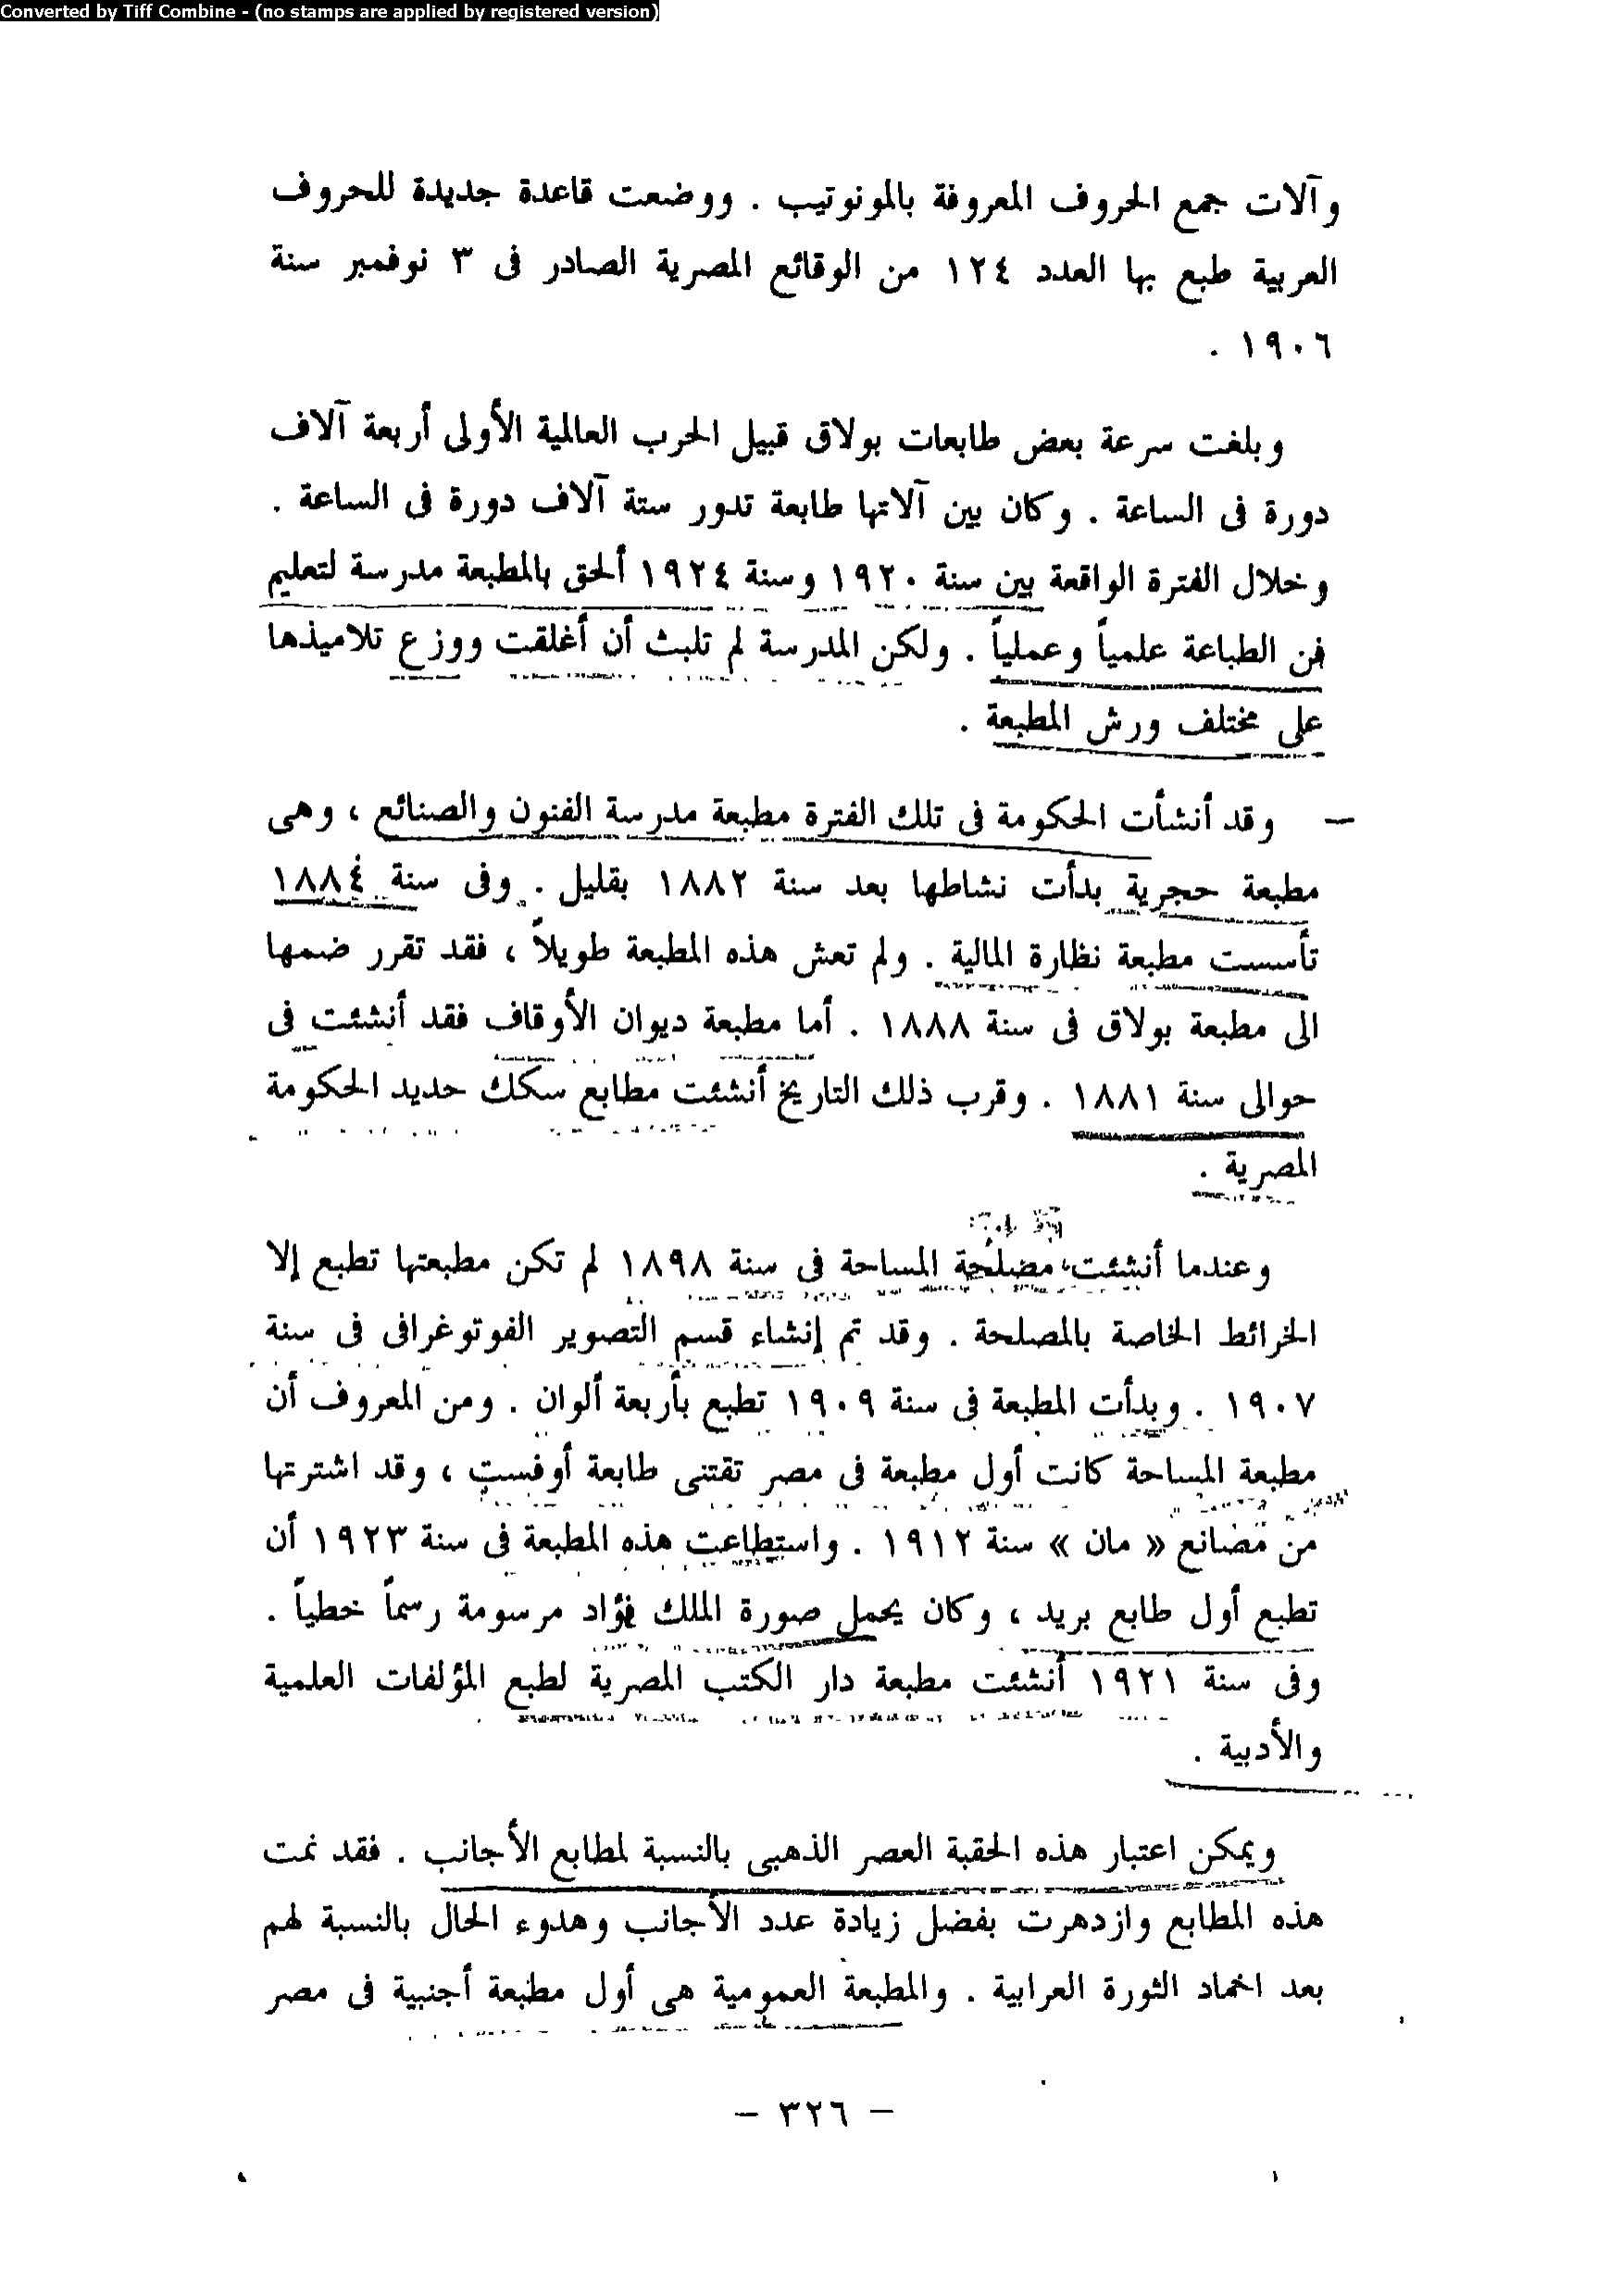 Converted by Tiff Combine - (no stamps are applied by registered version)
وآلات جمع الحروف المعروفة بالمونوتيب . ووضعت قاعدة جديدة للحروف
العربية طبع بها العدد ١٢٤ من الوقائع المصرية الصادر فى ٣ نوفمبر سنة
١٩٠٦ .
وبلغت سرعة بعض طابعات بولاق قبيل الحرب العالمية الأولى أربعة آلاف
دورة فى الساعة . وكان بين آلاتها طابعة تدور ستة آلاف دورة فى الساعة .
وخلال الفترة الواقعة بين سنة ١٩٢٠ وسنة ١٩٢٤ ألحق بالمطبعة مدرسة لتعليم
فن الطباعة علمياً وعملياً . ولكن المدرسة لم تلبث أن أغلقت ووزع تلاميذها
على مختلف ورش المطبعة .
– وقد أنشأت الحكومة فى تلك الفترة مطبعة مدرسة الفنون والصنائع ، وهى
مطبعة حجرية بدأت نشاطها بعد سنة ١٨٨٢ بقليل . وفى سنة ١٨٨٤
تأسست مطبعة نظارة المالية . ولم تعش هذه المطبعة طويلاً ، فقد تقرر ضمها
الى مطبعة بولاق فى سنة ١٨٨٨ . أما مطبعة ديوان الأوقاف فقد أنشئت فى
حوالى سنة ١٨٨١ . وقرب ذلك التاريخ أنشئت مطابع سكك حديد الحكومة
المصرية .
وعندما أنشئت مصلحة المساحة فى سنة ١٨٩٨ لم تكن مطبعتها تطبع إلا
الخرائط الخاصة بالمصلحة . وقد تم إنشاء قسم التصوير الفوتوغرافى فى سنة
١٩٠٧ . وبدأت المطبعة فى سنة ١٩٠٩ تطبع بأربعة ألوان . ومن المعروف أن
مطبعة المساحة كانت أول مطبعة فى مصر تقتنى طابعة أوفست ، وقد اشترتها
من مصانع « مان » سنة ١٩١٢ . واستطاعت هذه المطبعة فى سنة ١٩٢٣ أن
تطبع أول طابع بريد ، وكان يحمل صورة الملك فؤاد مرسومة رسماً خطياً .
وفى سنة ١٩٢١ أنشئت مطبعة دار الكتب المصرية لطبع المؤلفات العلمية
والأدبية .
ويمكن اعتبار هذه الحقبة العصر الذهبى بالنسبة لمطابع الأجانب . فقد نمت
هذه المطابع وازدهرت بفضل زيادة عدد الأجانب وهدوء الحال بالنسبة لهم
بعد اخماد الثورة العرابية . والمطبعة العمومية هى أول مطبعة أجنبية فى مصر
– ٣٢٦ –